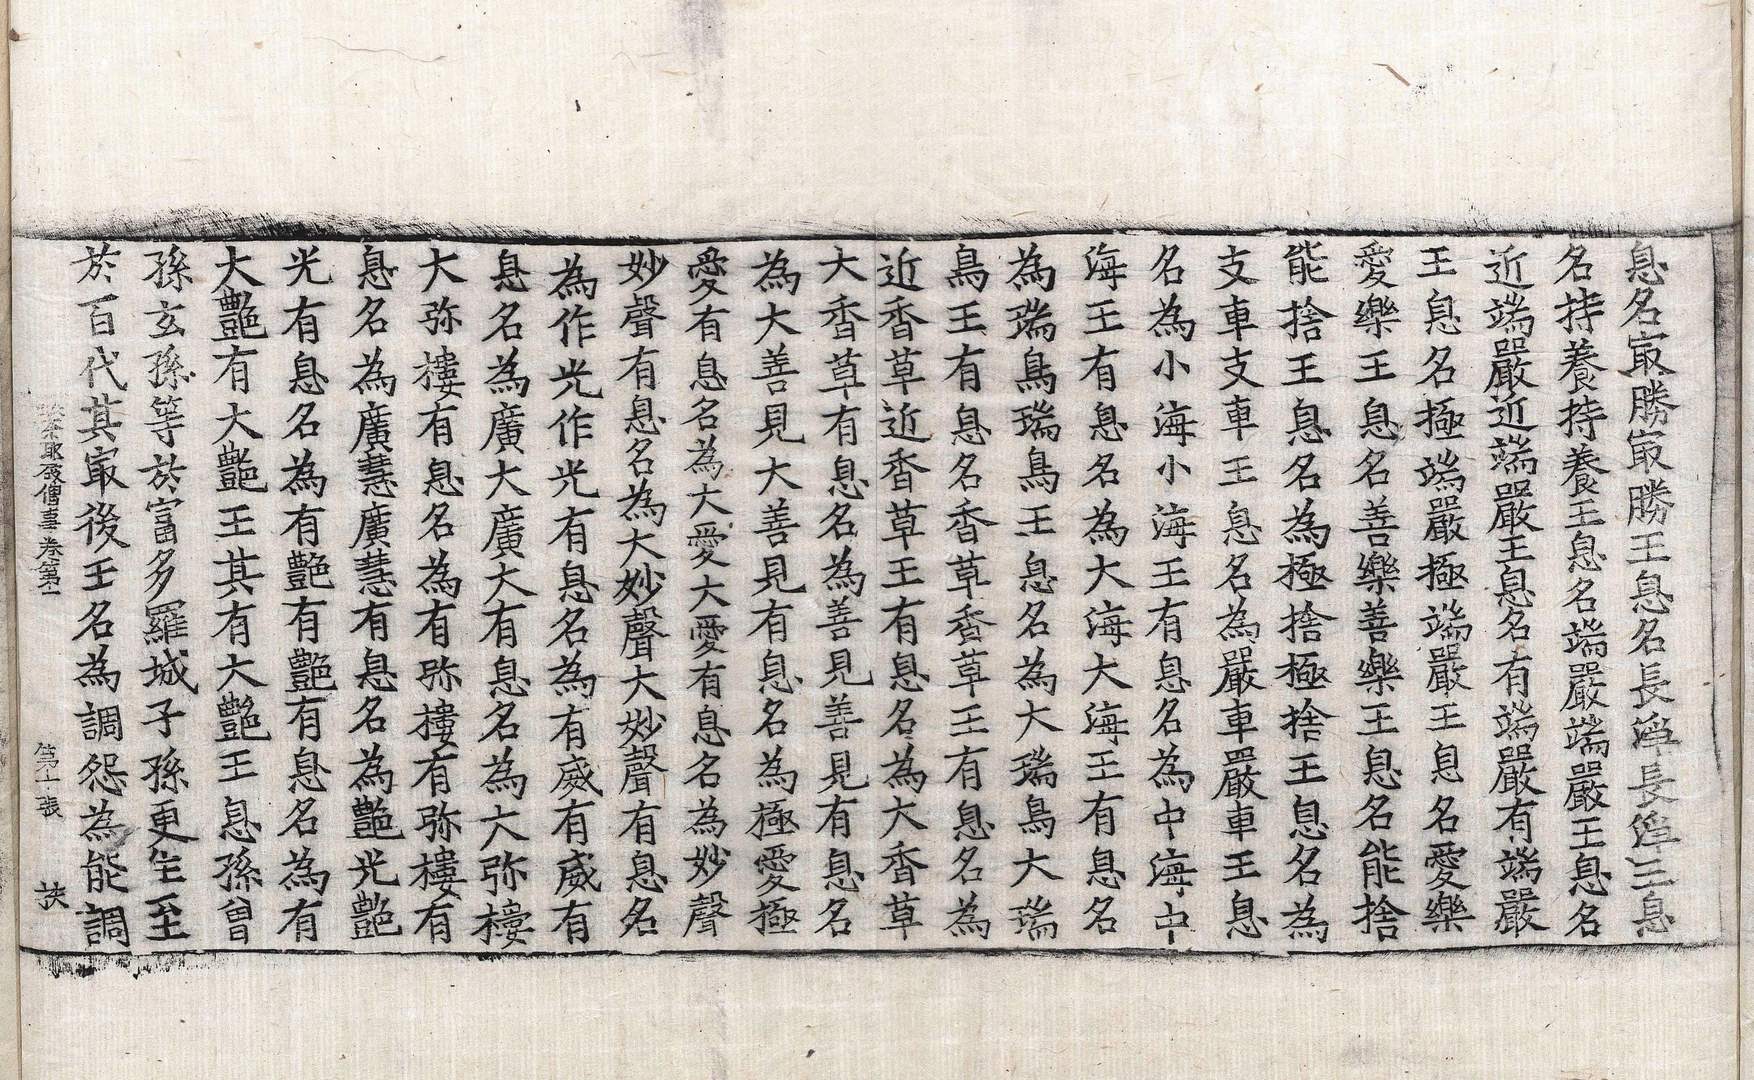 息名㝡勝㝡勝王息名長淨長淨王息
名持養持養王息名端嚴端嚴王息名
近端嚴近端嚴王息名有端嚴有端嚴
王息名極端嚴極端嚴王息名愛樂
愛樂王息名善樂善樂王息名能捨
能捨王息名為極捨極捨王息名為
支車支車王息名為嚴車嚴車王息
名為小海小海王有息名為中海中
海王有息名為大海大海王有息名
為瑞鳥瑞鳥王息名為大瑞鳥大瑞
鳥王有息名香草香草王有息名為
近香草近香草王有息名為大香草
大香草有息名為善見善見有息名
為大善見大善見有息名為極愛極
愛有息名為大愛大愛有息名為妙聲
妙聲有息名為大妙聲大妙聲有息名
為作光作光有息名為有威有威有
息名為廣大廣大有息名為大弥樓
大弥樓有息名為有弥樓有弥樓有
息名為廣慧廣慧有息名為艶光艶
光有息名為有艶有艶有息名為有
大艶有大艶王其有大艶王息孫曾
孫玄孫等於富多羅城子孫更生至
於百代其㝡後王名為調怨為能調
卷第
第十張